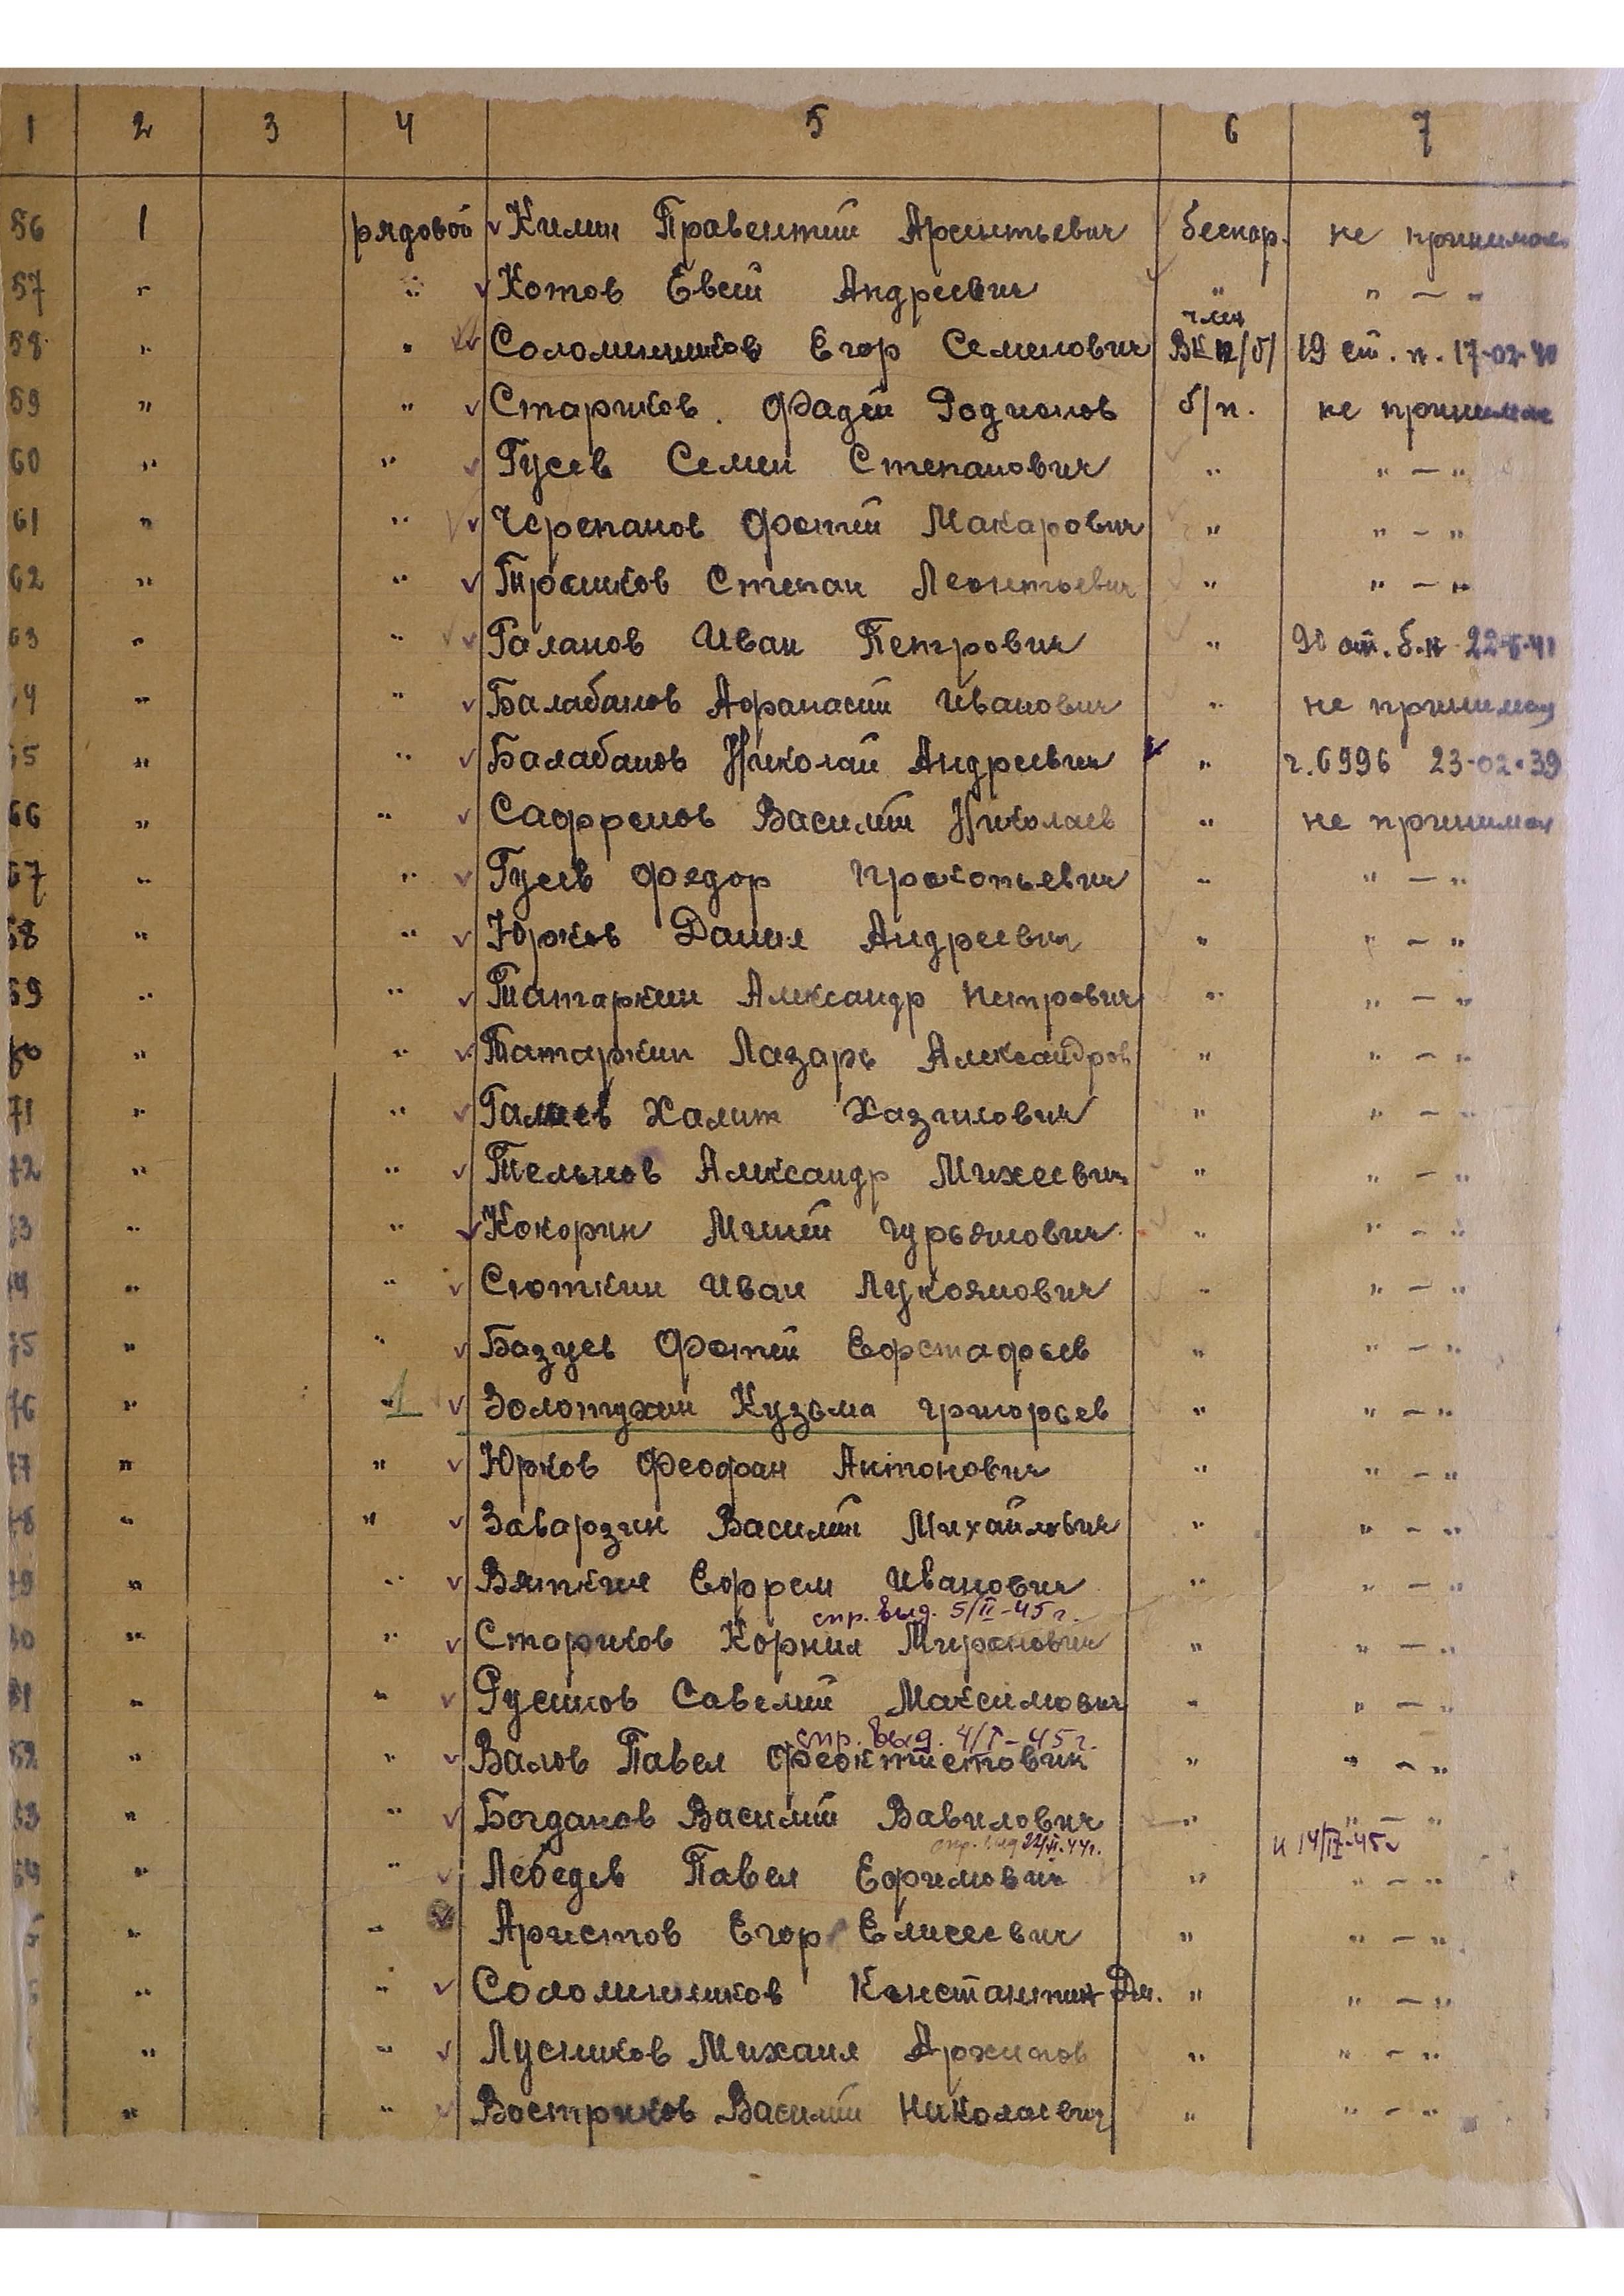 1 2 3 4 5 6 7
56 1 рядовой Килин Правентий Арентьевич беспар. не принимал
57 " " Котов Евсей Андреевич " " — "
член
58 " " Соломенников Егор Семенович ВКП/б/ 19 ст. п. 17-02-40
59 " " Стариков Фадей Родионов б/п. не принимал
60 " " Гусев Семен Степанович " " — "
61 " " Черепанов Фотей Макарович " " — "
62 " " Трошков Степан Леонтьевич " " — "
63 " " Галанов Иван Петрович " 90 от. б.н
64 " " Балабанов Афанасий Иванович " не принимал
65 " " Балабанов Николай Андреевич " ч.6996 23-02-39
66 " " Саффронов Василий Николаев " не принимал
67 " " Гусев Федор Прокопьевич " " — "
68 " " Юрков Данил Андреевич " " — "
69 " " Татаркин Александр Петрович " " — "
70 " " Татаркин Лазарь Александров " " — "
71 " " Галиев Халит Хазилович " " — "
72 " " Тельнов Александр Михеевич " " — "
73 " " Кокорин Миней Гурьянович " " — "
74 " " Сюткин Иван Лукоянович " " — "
75 " " Базуев Фотей Ефстафьев " " — "
76 " 1 Золотухин Кузьма Григорьев " " — "
77 " " Юрков Феофан Антонович " " — "
78 " " Заварзин Василий Михайлович " " — "
79 " " Вяткин Ефрем Иванович " " — "
спр. выд. 5/II-45 г.
80 " " Стариков Корнил Миронович " " — "
81 " " Русинов Савелий Максимович " " — "
спр. выд. 4/I-45 г.
82 " " Валов Павел Феоктистович " " — "
83 " " Богданов Василий Вавилович " " — "
спр. выд 22/II-44г. и 14/IV-45
84 " " Лебедев Павел Ефимович " " — "
5 " " Аристов Егор Елисеевич " " — "
" " Соломенников Константин Дм. " " — "
" " Лусников Михаил Архипов " " — "
" " Востриков Василий Николаевич " " — "